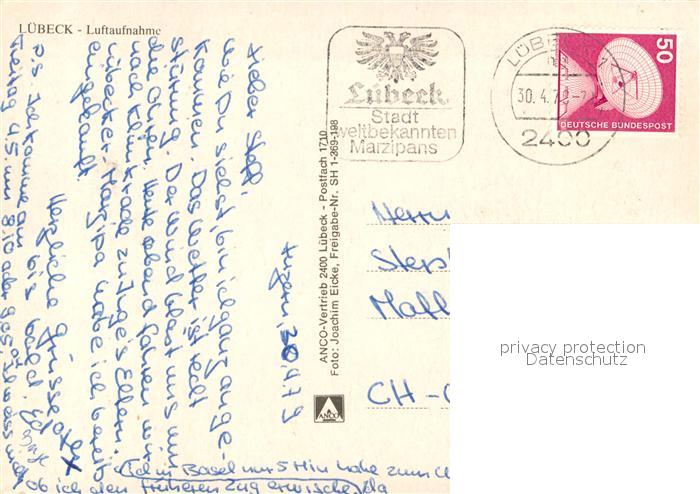 LÜBECK - Luftaufnahme
Lübeck
Stadt
weltbekannten
Marzipans
LÜBECK
30. 4. 7
2400
50
DEUTSCHE BUNDESPOST
ANCO-Vertrieb 2400 Lübeck - Postfach 1710
Foto: Joachim Eicke, Freigabe-Nr. SH 1-269-198
ANCO
30.4.79
Lieber Steff,
wie Du siehst, bin ich ganz ange-
kommen. Das Wetter ist recht
stürmig. Der Wind bläst uns um
die Ohren. Heute abend fahren wir
nach Klinkrade zu Inge's Eltern.
Lübecker Marzipa habe ich bereits
eingekauft.
Herzliche Grüsse
bis bald.
P.S. Ich komme am
Freitag 4.5. um 8.10 oder 9.05, ich weiss nicht
ob ich den früheren Zug erwische, da
ich in Basel nur 5 Min habe zum
Herrn
CH -
privacy protection
Datenschutz